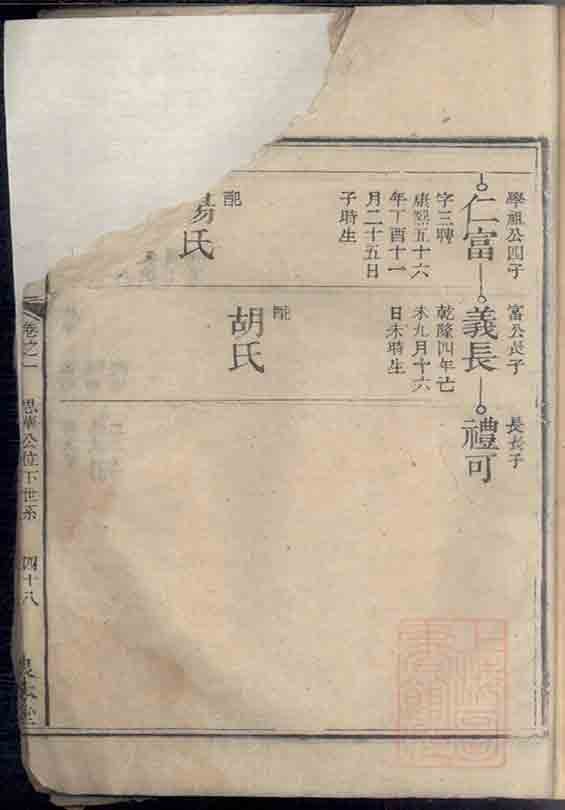 學祖公四子
仁富
字三聘
康熙五十六
年丁酉十一
月二十五日
子時生
配
楊氏
富公長子
義長
乾隆四年己
未九月十六
日未時生
配
胡氏
長長子
禮可
卷之一
思華公位下世系
四十八